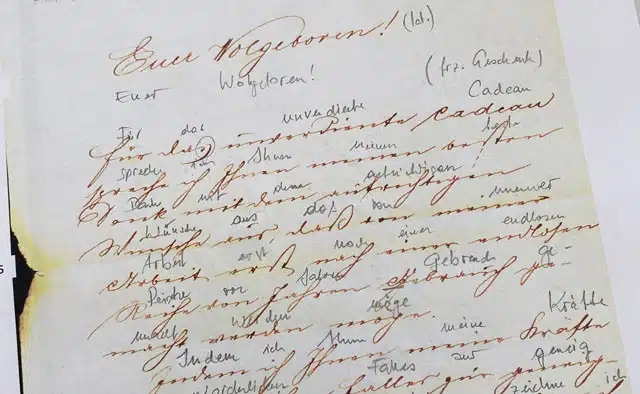 Euer Wolgeboren! (lat.)
Euer Wolgeboren! (frz. Geschenk)
Für das unverdiente Cadeau
für das unverdiente cadeau
spreche ich Ihnen meinen beste
spreche ich Ihnen meinen besten
Dank mit dem aufrichtigen
Dank mit dem aufrichtigen
Wunsche aus, daß von meiner
Wunsche aus, daß von meiner
Arbeit erst nach einer endlosen
Arbeit erst nach einer endlosen
Reihe von Jahren Gebrauch ge-
Reihe von Jahren Gebrauch ge-
macht werden möge
macht werden möge.
Indem ich Ihnen meine Kräfte
Indem ich Ihnen meine Kräfte
Falles zur geneig
Falles zur geneig-
zeichne ich